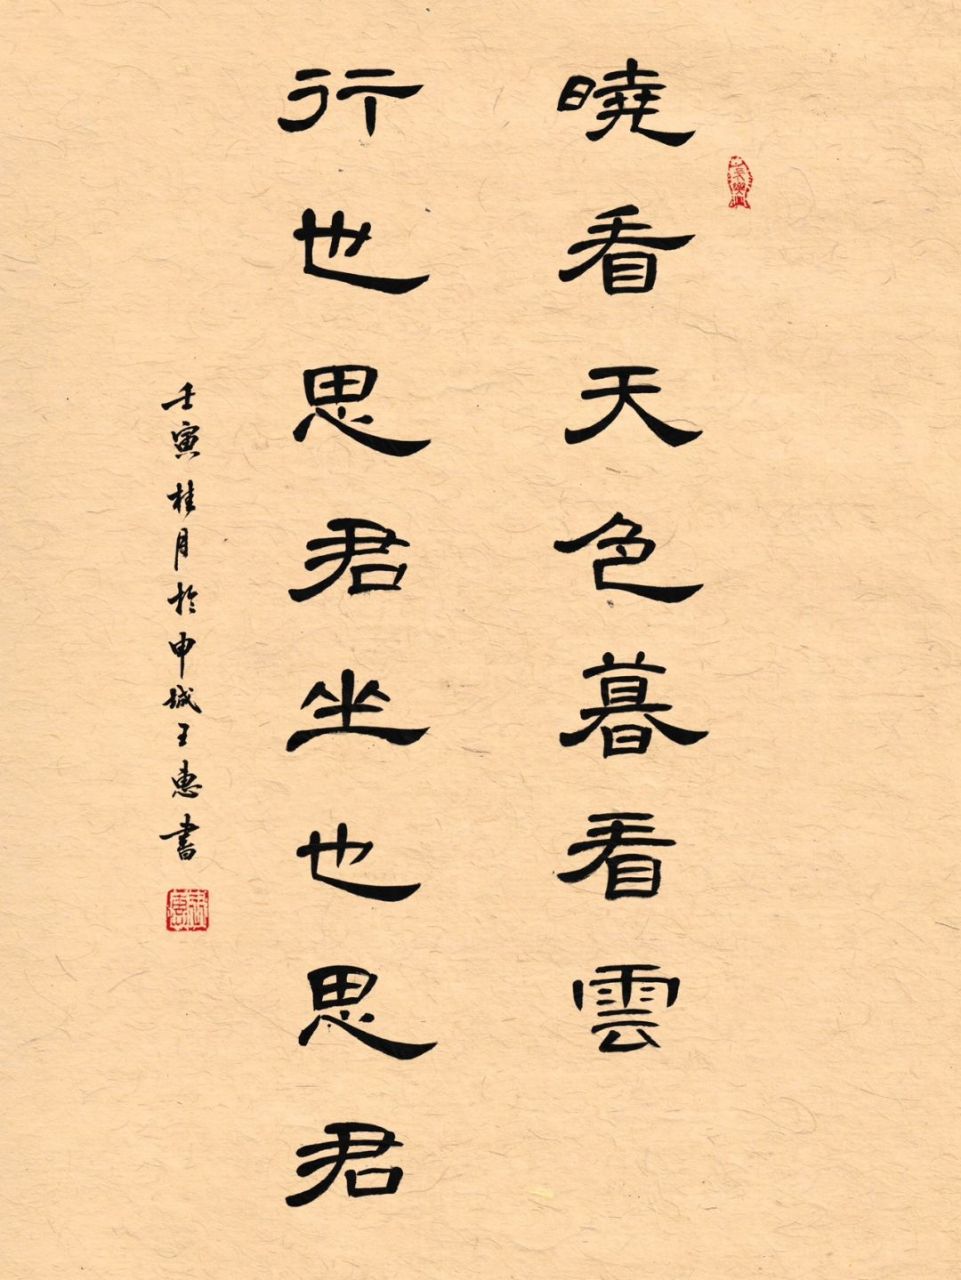 曉看天色暮看雲
行也思君坐也思君
壬寅桂月於申城王惠書